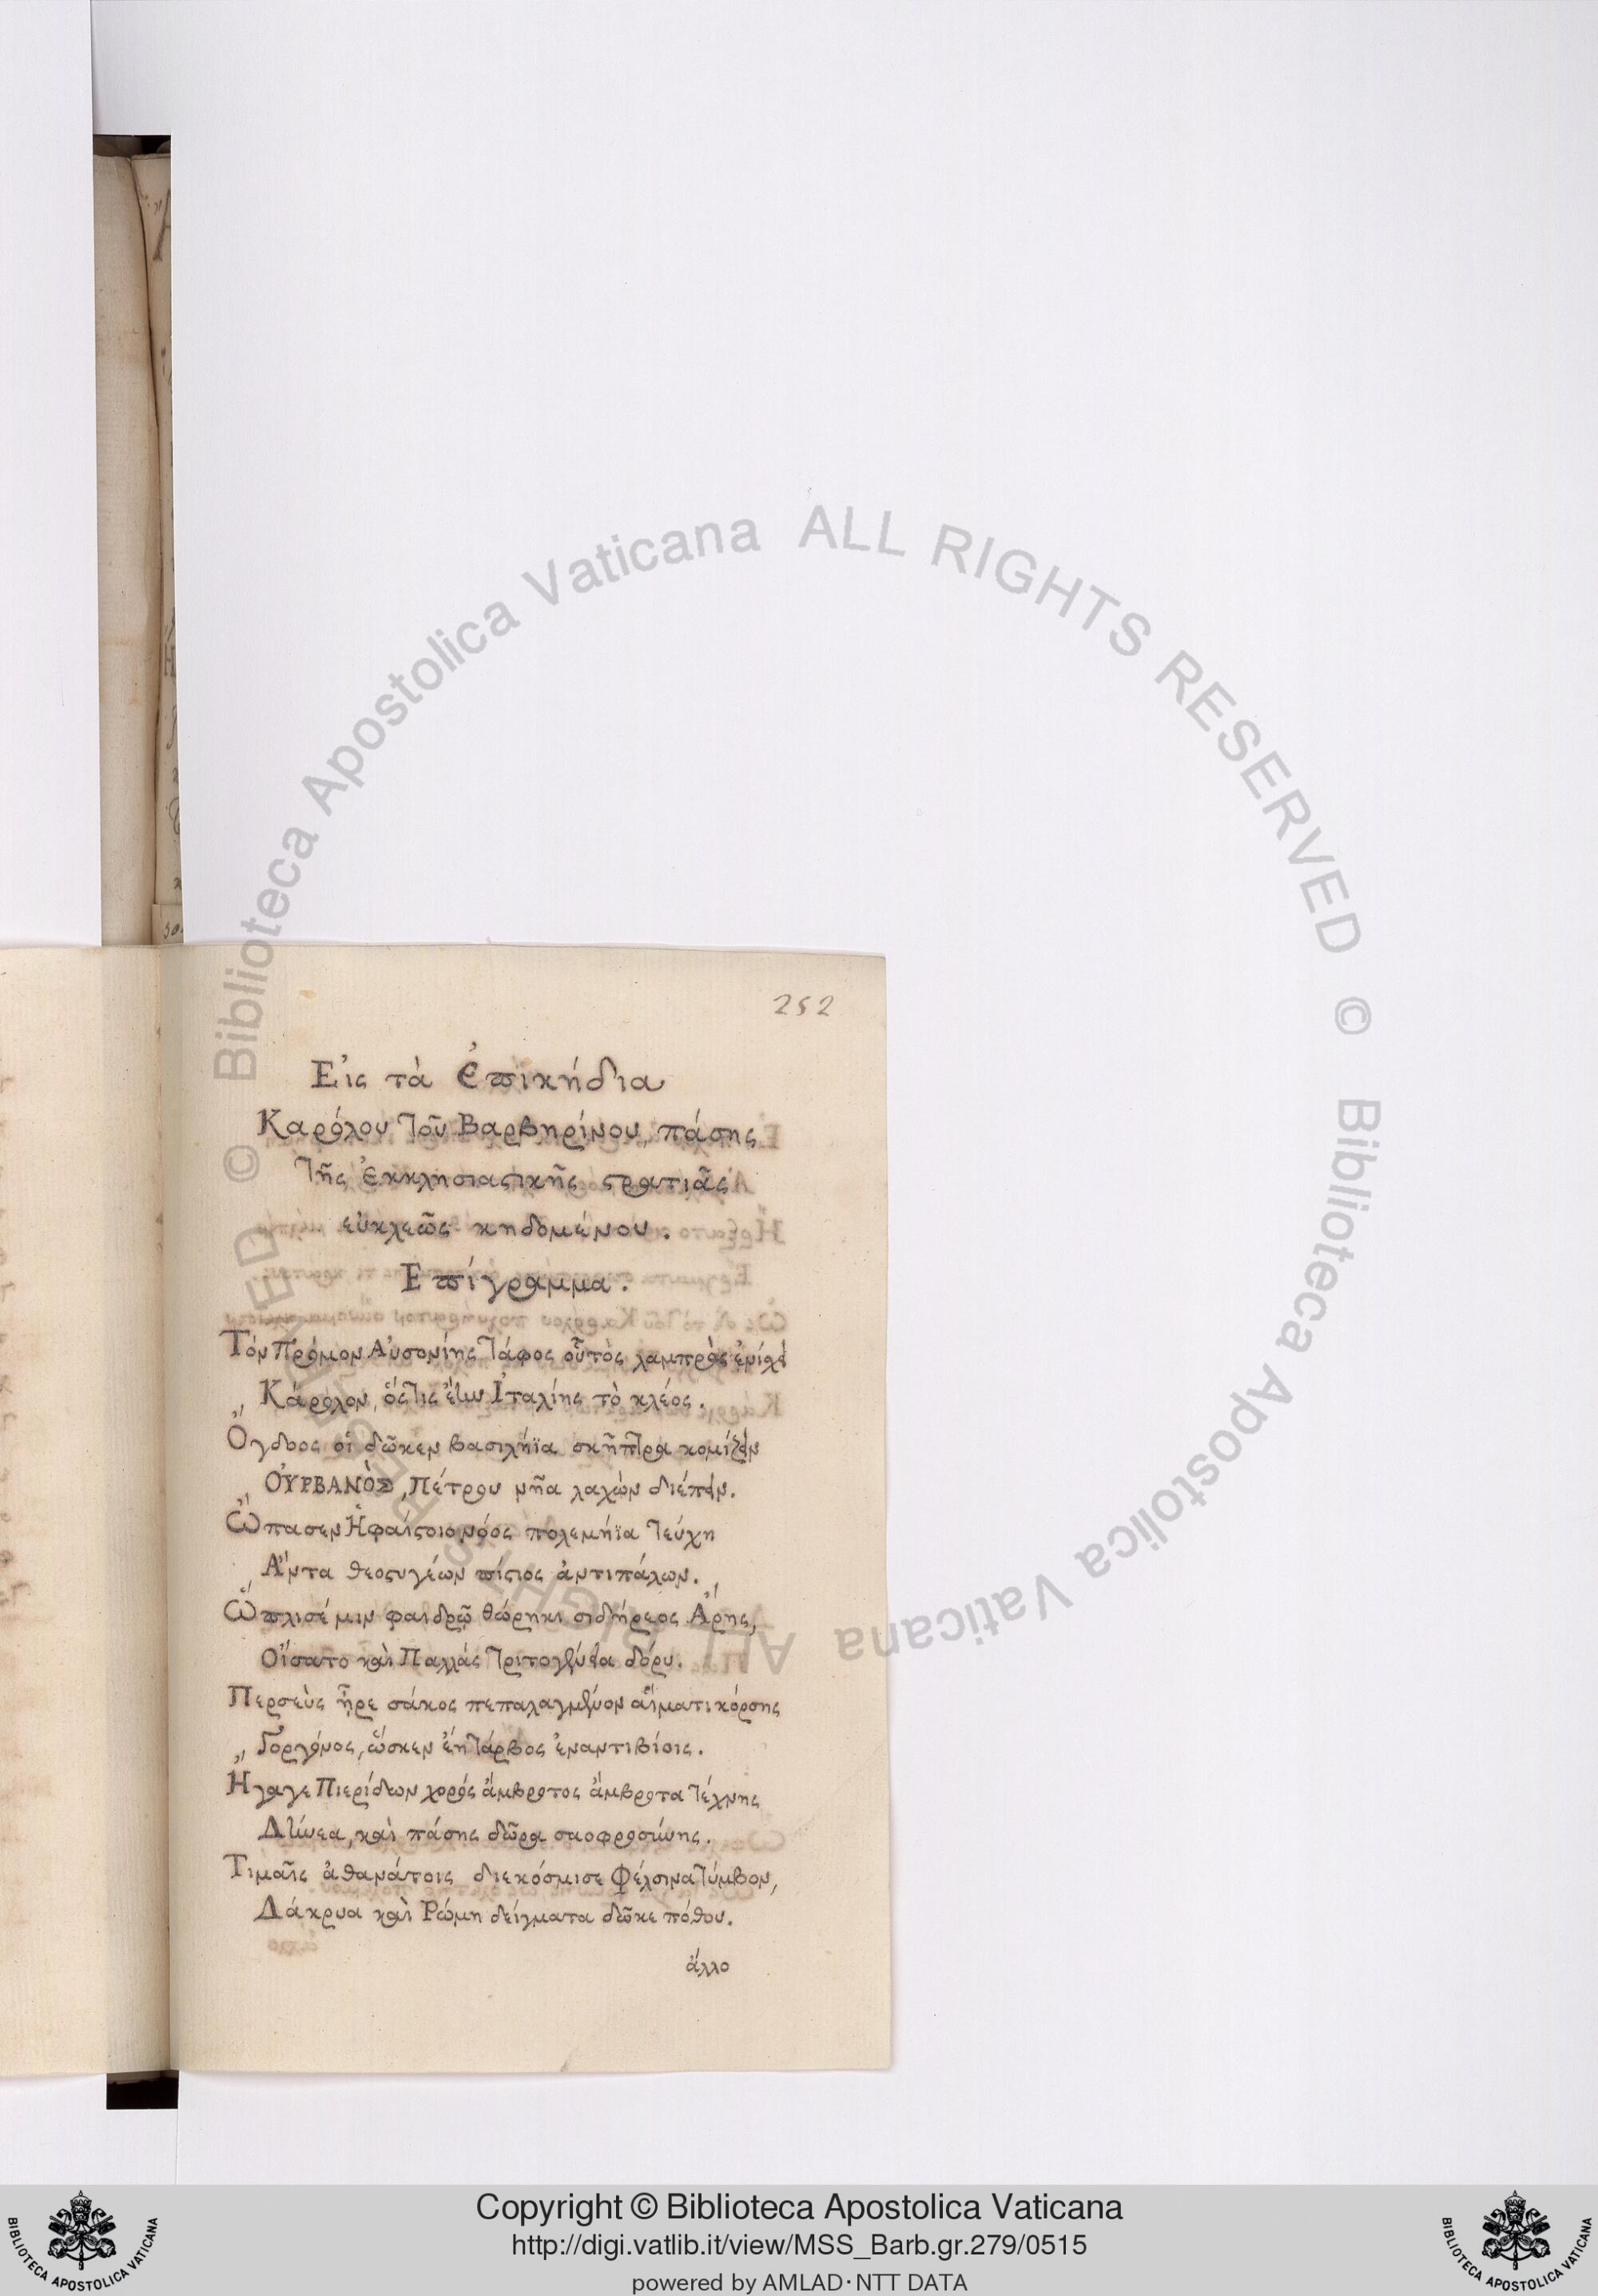 252
Εἰς τὰ Ἐπικήδια
Καρόλου τοῦ Βαρβηρίνου, πάσης
τῆς Ἐκκλησιαστικῆς στρατιᾶς
εὐκλεῶς κηδομένου.
Επίγραμμα.
Τόν Πρόμον Αὐσονίης τάφος οὗτὸς λαμπρὸς ἐνίσχει
Κάρολον, ὅςτις ἔην Ἰταλίης τὸ κλέος.
Ὄγδοος οἱ δῶκεν βασιλήϊα σκῆπτρα κομίζειν
ΟΥΡΒΑΝῸΣ, Πέτρου νῆα λαχὼν διέπειν.
Ὤπασεν Ἡφαίστοιο νόος πολεμήϊα τεύχη
Ἄντα θεοστυγέων πίστιος ἀντιπάλων.
Ὥπλισέ μιν φαιδρῷ θώρηκι σιδήρεος Ἄρης,
Οἴσατο καὶ Παλλάς Τριτογένεια δόρυ.
Περσεὺς ᾖρε σάκος πεπαλαγμένον αἵματι κόρσης
Γοργόνος, ὥσκεν ἔῃ τάρβος ἐναντιβίοις.
Ἤγαγε Πιερίδων χορός ἄμβροτος ἄμβροτα τέχνης
Δήνεα, καὶ πάσης δῶρα σαοφροσύνης.
Τιμαῖς ἀθανάτοις διεκόσμισε Φέλσινα τύμβον,
Δάκρυα καὶ Ρώμη δείγματα δῶκε πόθου.
ἄλλο
© Biblioteca Apostolica Vaticana ALL RIGHTS RESERVED © Biblioteca Apostolica Vaticana ALL RIGHTS RESERVED
Copyright © Biblioteca Apostolica Vaticana
http://digi.vatlib.it/view/MSS_Barb.gr.279/0515
powered by AMLAD·NTT DATA
BIBLIOTECA APOSTOLICA VATICANA
BIBLIOTECA APOSTOLICA VATICANA